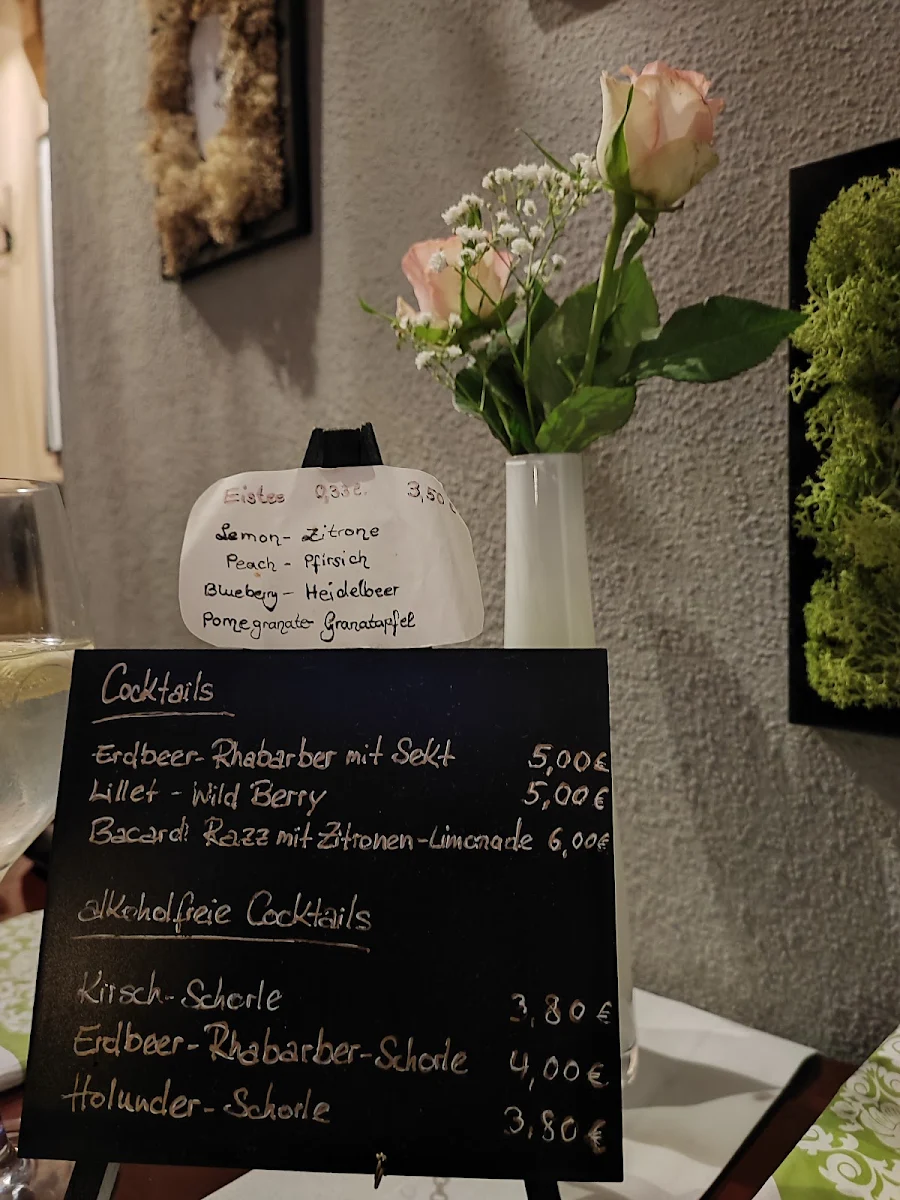 Eistee 0,33l. 3,50€
Lemon- Zitrone
Peach - Pfirsich
Blueberry - Heidelbeer
Pomegranate- Granatapfel
Cocktails
Erdbeer-Rhabarber mit Sekt 5,00€
Lillet - Wild Berry 5,00€
Bacardi Razz mit Zitronen-Limonade 6,00€
alkoholfreie Cocktails
Kirsch-Schorle 3,80€
Erdbeer-Rhabarber-Schorle 4,00€
Holunder-Schorle 3,80€